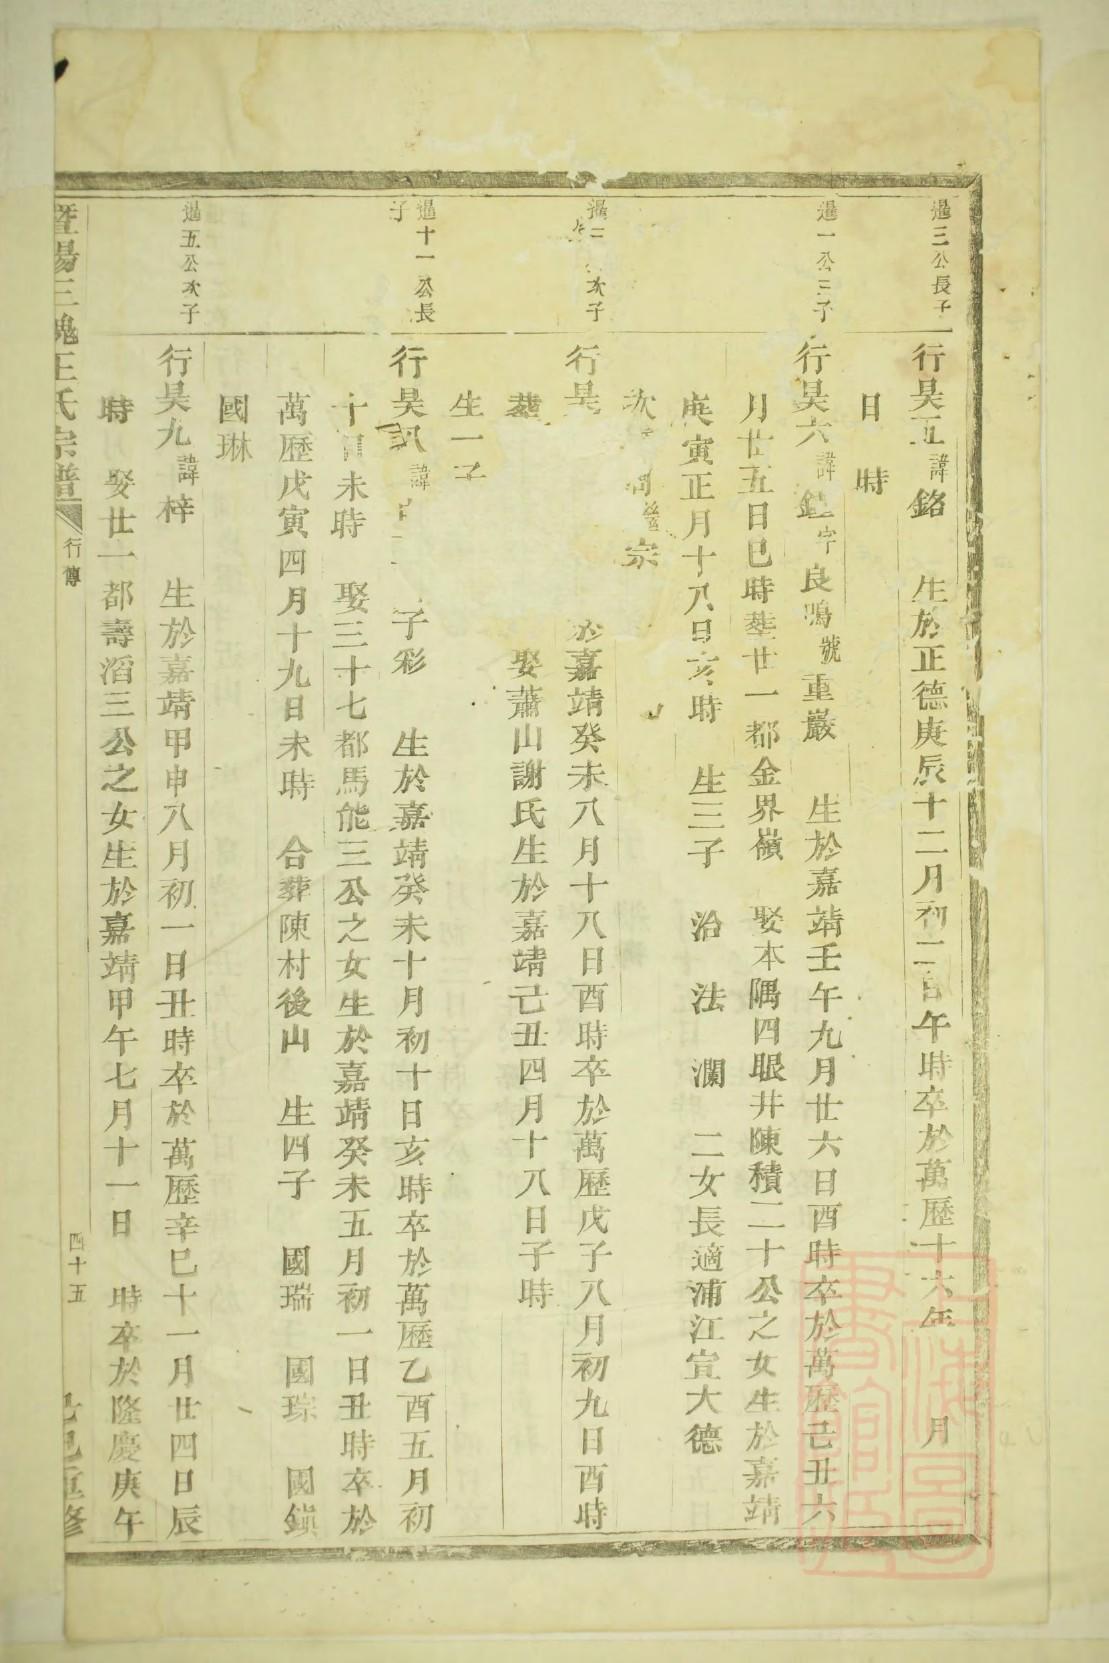 過三公長子
行昊五諱銘 生於正德庚辰十二月初二日午時卒於萬歷十六年 月
日 時
過一公三子
行昊六諱 字良鳴號重巖 生於嘉靖壬午九月廿六日酉時卒於萬歷己丑六
月廿五日巳時葬廿一都金界嶺 娶本隅四眼井陳積二十公之女生於嘉靖
庚寅正月十八日亥時 生三子 治 法 瀾 二女長適浦江宣大德
次 宗
次子
行昊 於嘉靖癸未八月十八日酉時卒於萬歷戊子八月初九日酉時
葬 娶蕭山謝氏生於嘉靖己丑四月十八日子時
生一子
過十一公長子
行昊 諱 子彩 生於嘉靖癸未十月初十日亥時卒於萬歷乙酉五月初
十日未時 娶三十七都馬能三公之女生於嘉靖癸未五月初一日丑時卒於
萬歷戊寅四月十九日未時 合葬陳村後山 生四子 國瑞 國琮 國鎖
國琳
過五公次子
行昊九諱梓 生於嘉靖甲申八月初一日丑時卒於萬歷辛巳十一月廿四日辰
時 娶廿一都壽滔三公之女生於嘉靖甲午七月十一日 時卒於隆慶庚午
暨陽三槐王氏宗譜 行傳 四十五 己巳重修
上海圖書館藏